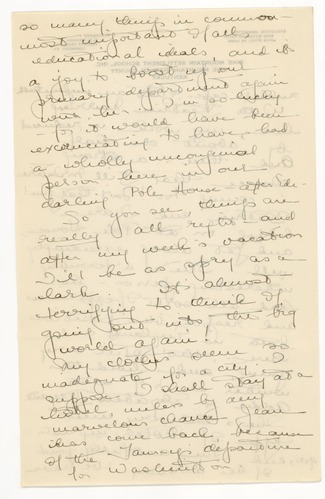 so many things in common —
most important of all,
educational ideals, and it's
a joy to boost up our
primary department again
with her. I'm so lucky
for it would have been
excruciating to have had
a wholly uncongenial
person here in our
darling Pole House after Edi-
So you see, things are
really all right — and
after my week's vacation
I'll be as spry as a
lark. It's almost
terrifying to think of
going out into the big
world again!
My clothes seem so
inadequate for a city. I
suppose I shall stay at a
hotel, unless by any
marvelous chance Jean
has come back, because
of the departure
for Washington